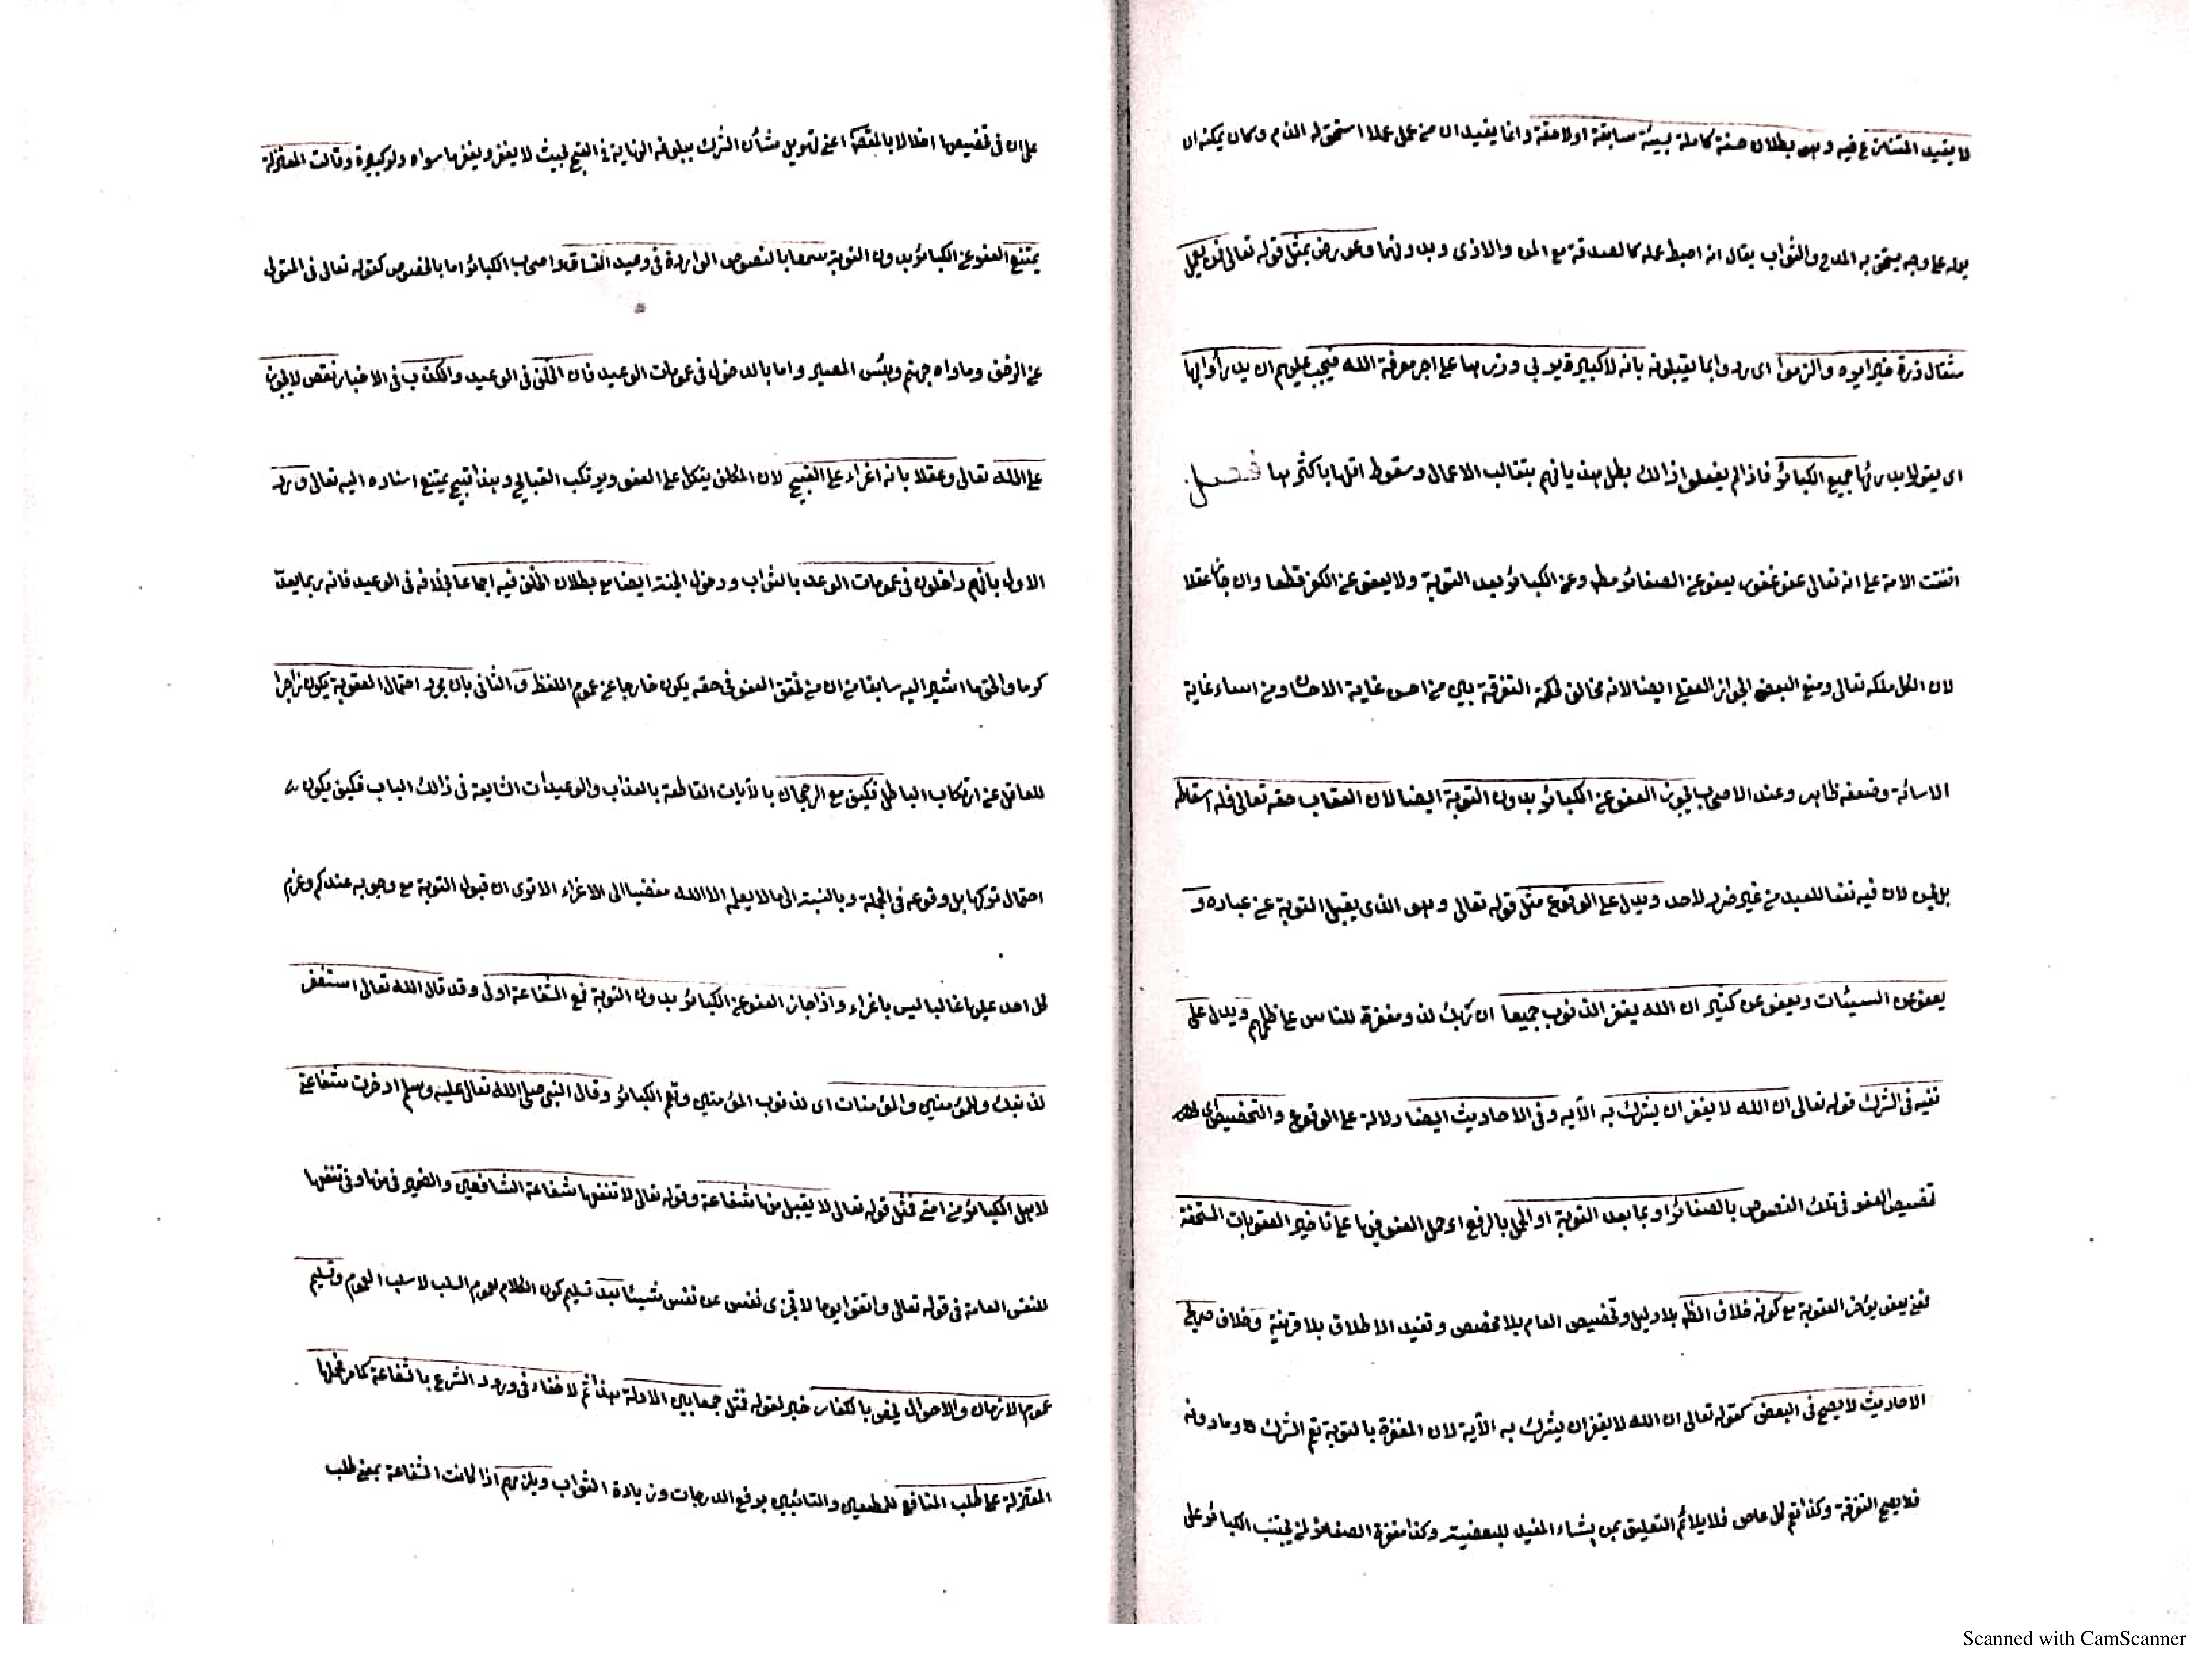 لا يفيد المتنازع فيه وهو بطلان حسنة كاملة بسيئة سابقة او لاحقة وانما يفيد ان من عمل عملا استحق به الذم وكان يمكنه ان
يعمله على وجه يستحق به المدح والثواب يقال انه احبط عمله كالصدقة مع المن والاذى وبدونهما وعورض بمثل قوله تعالى فمن يعمل
مثقال ذرة خيرا يره والزموا اى رد وا بما يقبلونه بانه لا كبيرة يربى وزرها على اجر معرفة الله فيجب عليهم ان يدرأوا بها
اى يقولوا بدرئها جميع الكبائر فاذا لم يفعلوا ذالك بطل هذيانهم بتغالب الاعمال وسقوط اقلها باكثرها فصل
اتفقت الامة على انه تعالى عفو غفور يعفو عن الصغائر مطـ وعن الكبائر بعد التوبة ولا يعفو عن الكفر قطعا وان جاز عقلا
لان الكل ملكه تعالى ومنع البعض الجواز العقلى ايضا لانه مخالف لحكمة التفرقة بين من احسن غاية الاحسان ومن اساء غاية
الاسائة وضعفه ظاهر وعند الاصحاب يجوز العفو عن الكبائر بدون التوبة ايضا لان العقاب حقه تعالى فله اسقاطه
بل يحسن لان فيه نفعا للعبد من غير ضرر لاحد ويدل على الوقوع مثل قوله تعالى وهو الذى يقبل التوبة عن عباده و
يعفو عن السيئات ويعفو عن كثير ان الله يغفر الذنوب جميعا ان ربك لذو مغفرة للناس على ظلمهم ويدل على
نفيه فى الشرك قوله تعالى ان الله لا يغفر ان يشرك به الآيه وفى الاحاديث ايضا دلالة على الوقوع والتخصيص اى
تخصيص العفو فى تلك النصوص بالصغائر او بما بعد التوبة او الحمل بالرفع اى حمل العفو فيها على تأخير العقوبات المستحقة
فمعنى يعفو يؤخر العقوبة مع كونه خلاف الظـ بلا دليل وتخصيص العام بلا مخصص وتقييد الاطلاق بلا قرينة وخلاف صريح
الاحاديث لا يصح فى البعض كقوله تعالى ان الله لا يغفر ان يشرك به الآية لان المغفرة بالتوبة تعم الشرك وما دونه
فلا يصح التفرقة وكذا تعم كل عاص فلا يلائم التعليق بمن يشاء المفيد للبعضية وكذا مغفرة الصغائر لمن يجتنب الكبائر على
على ان فى تخصيصها اخلالا بالمقصد اعنى تهويل شأن الشرك ببلوغه النهاية فى القبح بحيث لا يغفر ويغفر ما سواه ولو كبيرة وقالت المعتزلة
يمتنع العفو عن الكبائر بدون التوبة سمعا بالنصوص الواردة فى وعيد الفساق واصحاب الكبائر اما بالخصوص كقوله تعالى فى المتولى
عن الزحف ومأواه جهنم وبئس المصير واما بالدخول فى عمومات الوعيد فان الخلف فى الوعيد والكذب فى الاخبار نقص لا يجوز
على الله تعالى وعقلا بانه اغراء على القبيح لان المكلف يتكل على العفو ويرتكب القبائح وهذا قبيح يمتنع اسناده اليه تعالى ورد
الاول بانهم داخلون فى عمومات الوعد بالثواب ودخول الجنة ايضا مع بطلان الخلف فيه اجماعا بخلافه فى الوعيد فانه ربما يعد
كرما والحق ما اشير اليه سابقا من ان من تحقق العفو فى حقه يكون خارجا عن عموم اللفظ والثانى بان مجرد احتمال العقوبة يكون زاجرا
للعاقل عن ارتكاب الباطل فكيف مع الرجحان بالآيات القاطعة بالعذاب والوعيدات الشايعة فى ذالك الباب فكيف يكون
احتمال تركها بل وقوعه فى الجملة وبالنسبة الى ما لا يعلم الا الله مفضيا الى الاغراء الا ترى ان قبول التوبة مع وجوبه عندكم وعزم
كل احد عليها غالبا ليس باغراء واذا جاز العفو عن الكبائر بدون التوبة فمع الشفاعة اولى وقد قال الله تعالى استغفر
لذنبك وللمؤمنين والمؤمنات اى لذنوب المؤمنين وتعم الكبائر وقال النبى صلى الله تعالى عليه وسلم ادخرت شفاعتى
لاهل الكبائر من امتى فمثل قوله تعالى لا يقبل منها شفاعة وقوله تعالى لا تنفعها شفاعة الشافعين والضمير فى منها وفى تنفعها
للنفس العامة فى قوله تعالى واتقوا يوما لا تجزى نفس عن نفس شيئا بعد تسليم كون الكلام لعموم السلب لا سلب العموم وتسليم
عموم الازمان والاحوال يخص بالكفار خبر لقوله فمثل جمعا بين الادلة هذا ثم لا خفاء فى ورود الشرع بالشفاعة كما مر فحملها
المعتزلة على طلب المنافع للمطيعين والتائبين برفع الدرجات وزيادة الثواب ويلزمهم اذا كانت الشفاعة بمعنى طلب
Scanned with CamScanner